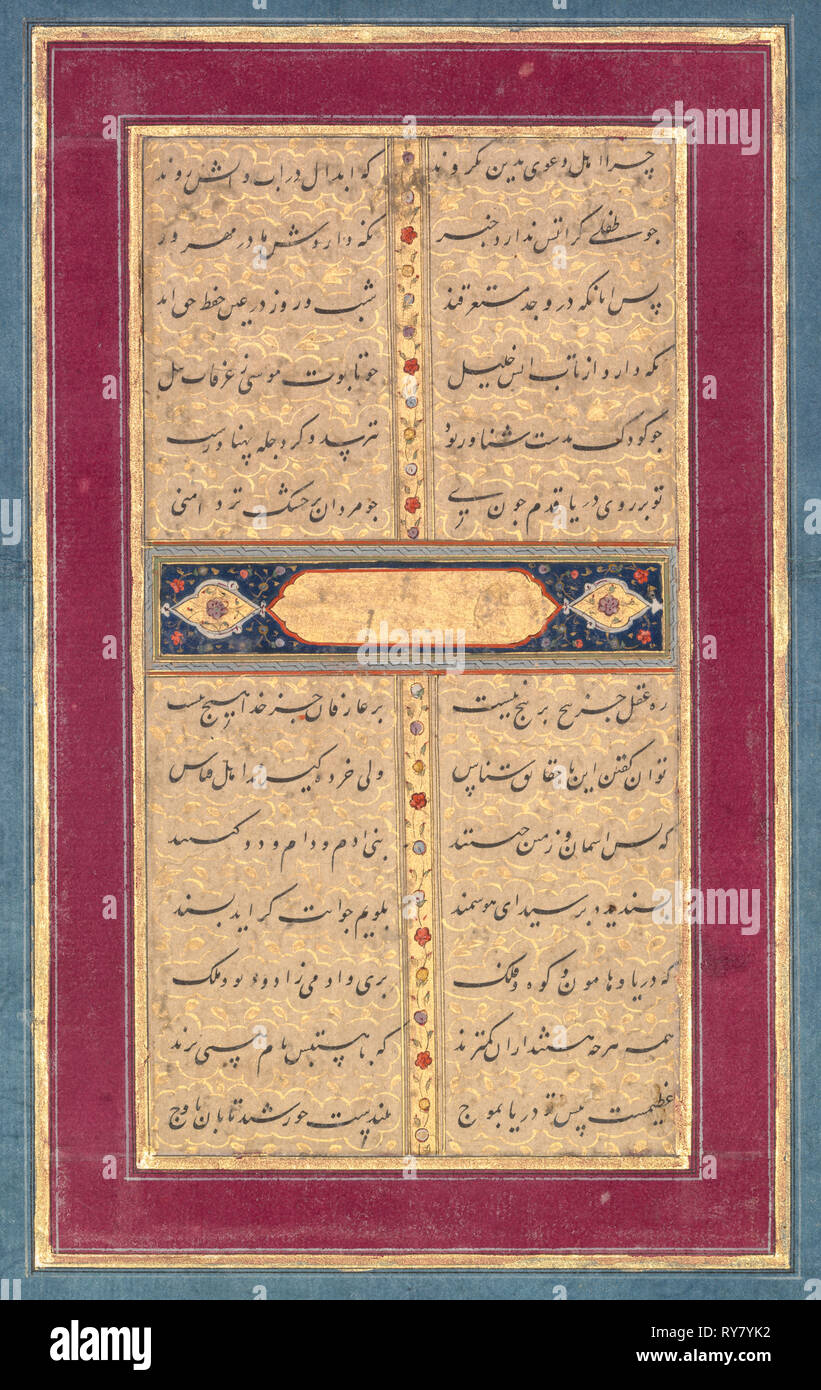 چرا اهل دعوی بدین نگروند که ابدال در آب و آتش روند
چو طفلی کز آتش ندارد خبر نگه داردش مادر مهرور
پس آنانکه در وجد مستغرقند شب و روز در عین حفظ
نگه دارد از تاب آتش خلیل چو تابوت موسی ز غرقاب نیل
چو کودک بدست شناور نترسد وگر دجله پهناورست
تو بر روی دریا قدم چون زنی چو مردان بر خشک تر دامنی
ره عقل جز پیچ بر پیچ نیست بر عارفان جز خدا هیچ نیست
توان گفتن این با حقایق شناس ولی خرده گیرند اهل قیاس
که پس آسمان و زمین چیستند بنی آدم و دام و دد کیستند
پسندیده پرسیدی ای هوشمند بگویم جوابت گر آید پسند
که دریا و هامون و کوه و فلک پری و آدمی زاد و دیو و ملک
همه هرچه هستند از آن کمترند که با هستیش نام هستی برند
عظیمست پیش تو دریا بموج بلندست خورشید تابان باوج
alamy
Image ID: RY7YK2
www.alamy.com